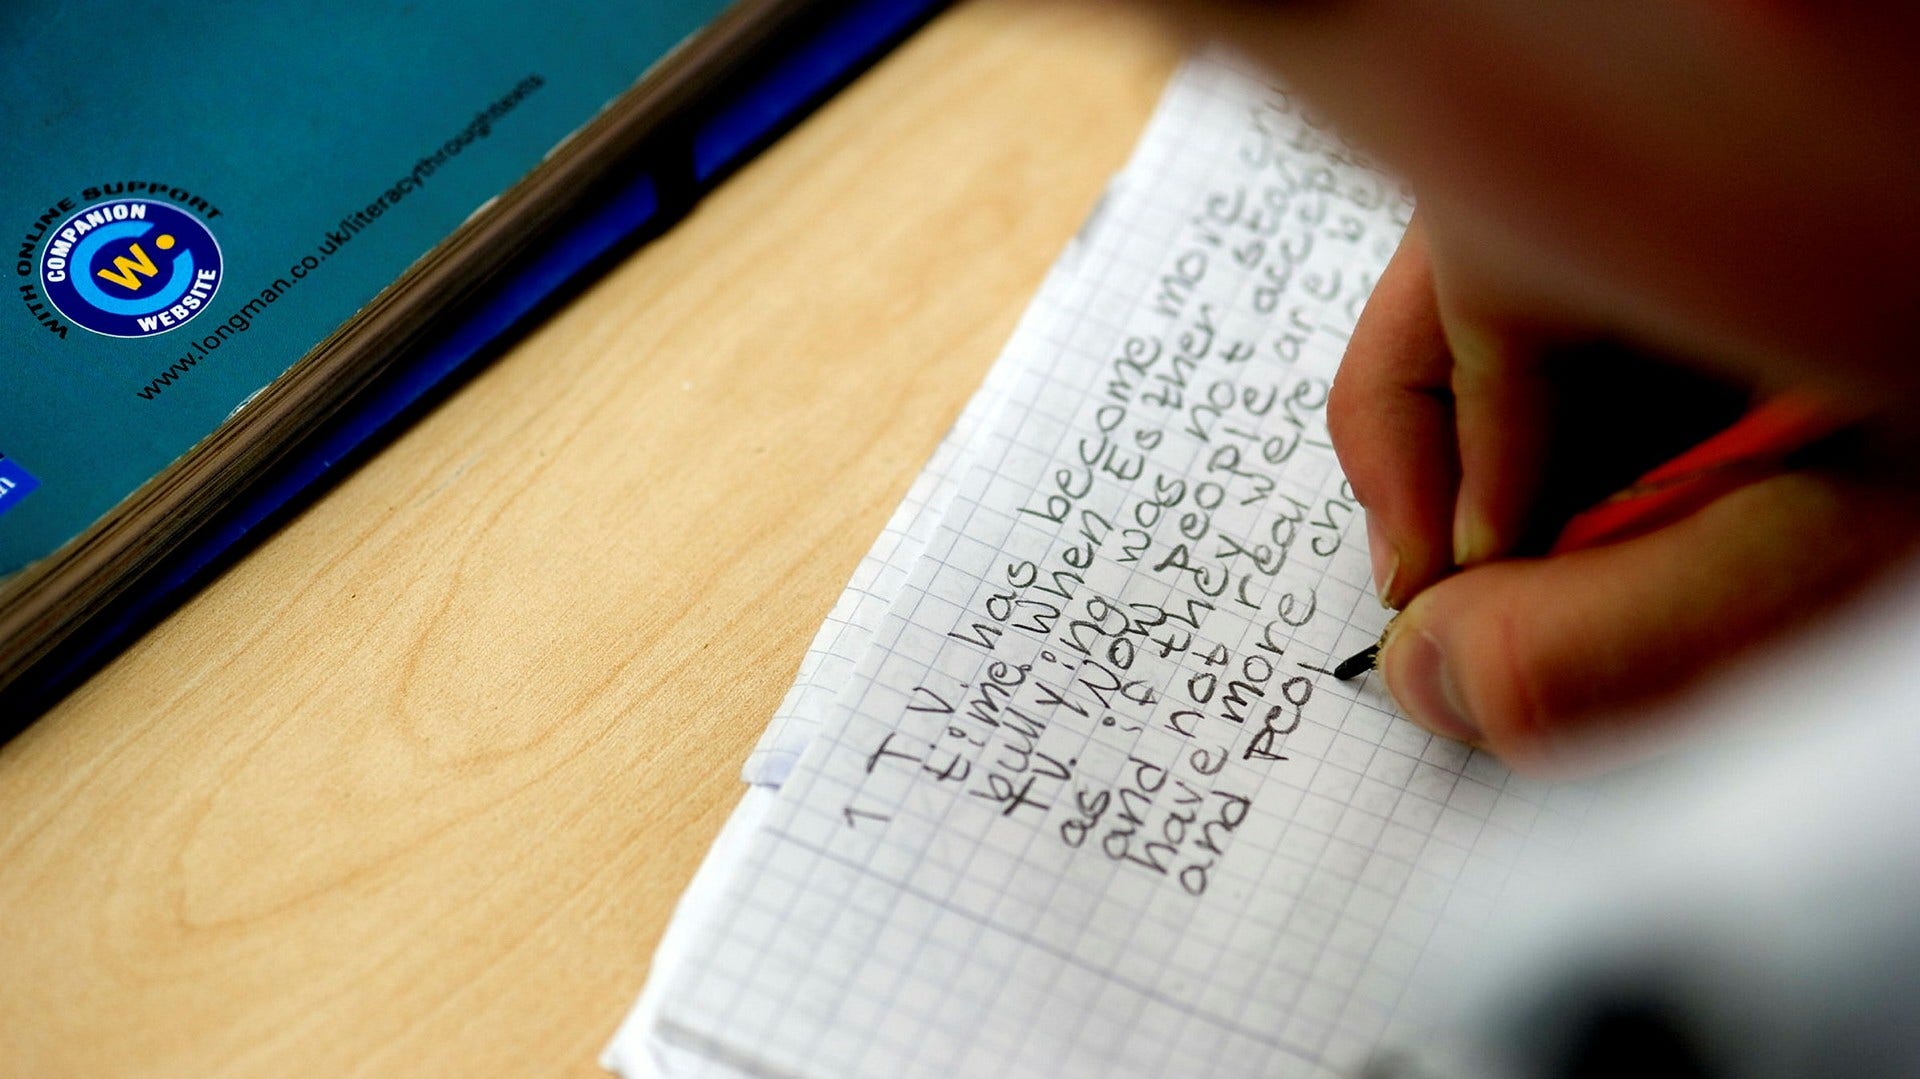 WITH ONLINE SUPPORT
COMPANION
W
WEBSITE
www.longman.co.uk/literacythroughtexts
1 T.V. has become more
time. when Es ther
bullying was not accep
TV. Now people are
as if they were
and not real
have more cha
and peo